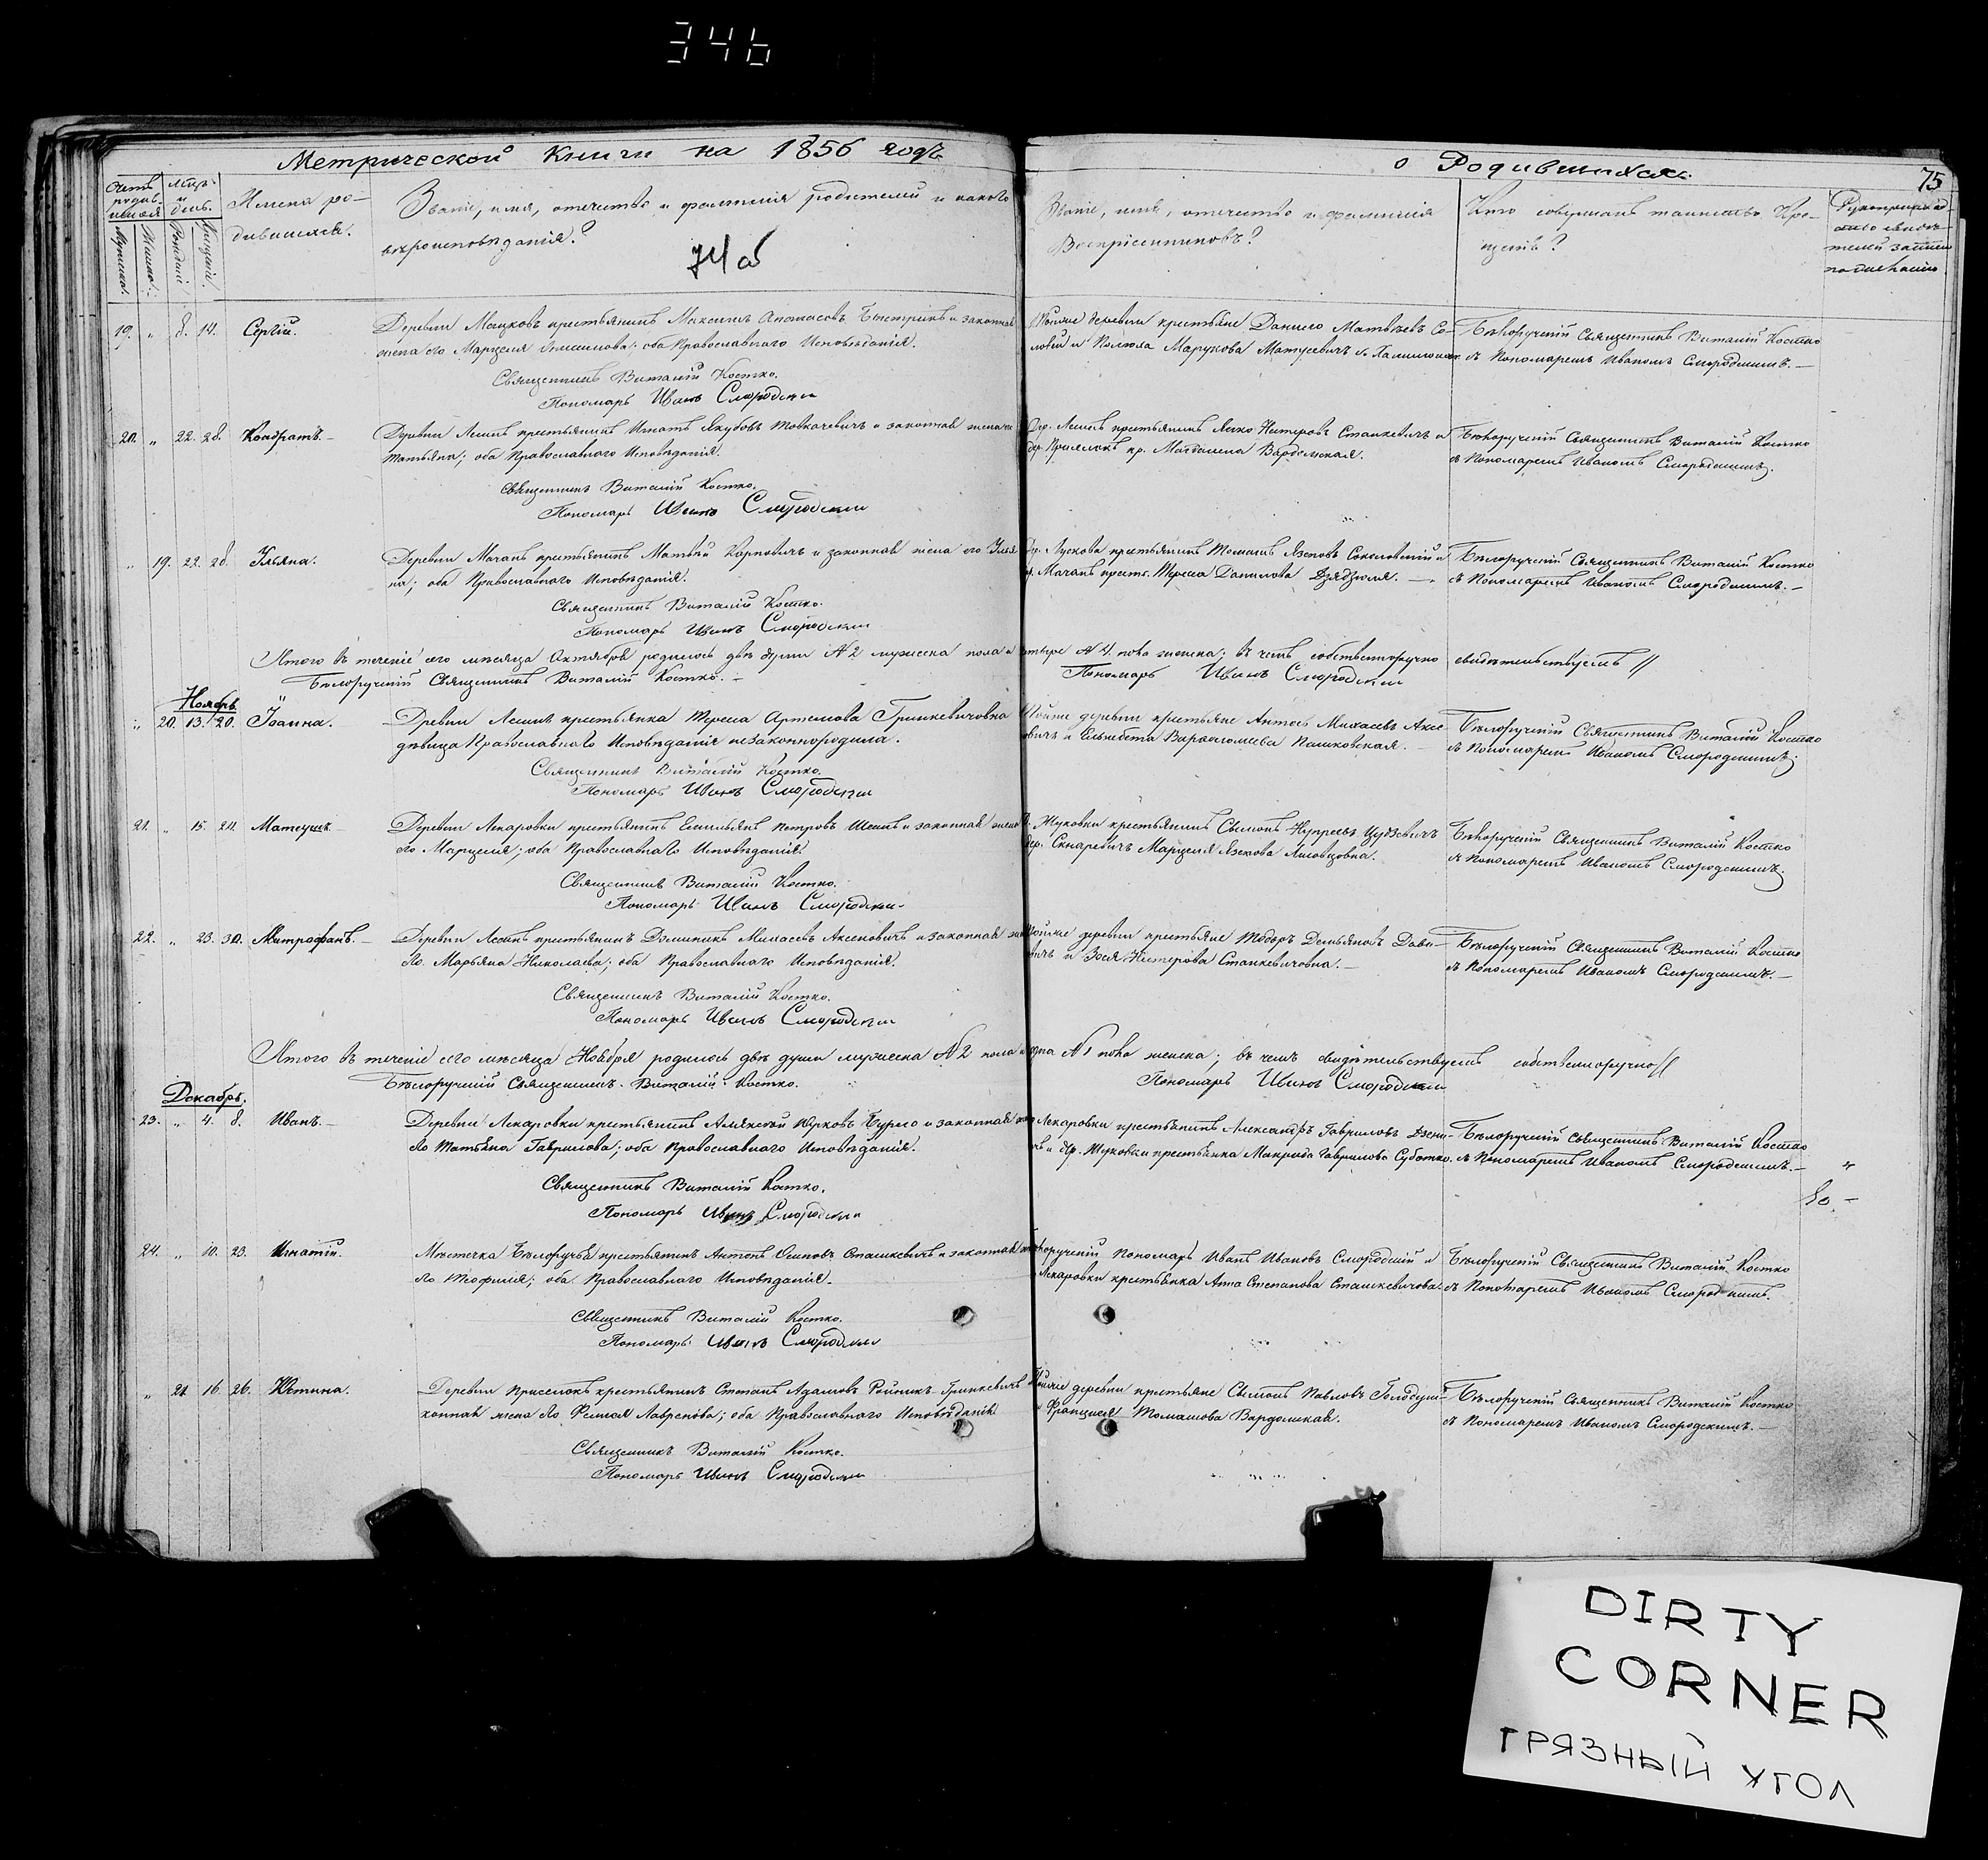 346
Метрической Книги на 1856 годъ
о Родившихся.
75
Счетъ родив- шихся
Мѣся- и день.
Имена ро-
дившихся.
Званіе, имя, отечество и фамилія родителей и какого
вѣроисповѣданія?
74 об
Званіе, имя, отечество и фамилія
Воспріемниковъ?
Кто совершалъ таинство Кре-
щенія?
Рукоприклад-
ство свидѣ-
телей записи
по желанію
Мужеска.
Женска.
Рожденія
Крещенія.
19. „ 8. 14. Сергій.
Деревни Мацковъ крестьянинъ Максимъ Апанасовъ и законная
жена его Марцеля; оба Православнаго Исповѣданія.
Священникъ Виталій Костко.
Пономарь Иванъ Смородскій
деревни крестьяне Данило Матвѣевъ Со-
Бѣлоручскій Священникъ Виталій Костко
съ Пономаремъ Иваномъ Смородскимъ.—
20. „ 22. 28. Кондратъ.—
Деревни Лешнъ крестьянинъ Игнатъ Якубовъ Товкачевичъ и законная жена его
Татьяна; оба Православнаго Исповѣданія.
Священникъ Виталій Костко.
Пономарь Иванъ Смородскій
Дер. Лешнъ крестьянинъ Янко Нестеровъ Станкевичъ и
др. Приселокъ кр. Магдалена Вардомская.
Бѣлоручскій Священникъ Виталій Костко
съ Пономаремъ Иваномъ Смородскимъ.
„ 19. 22. 28. Ульяна.
Деревни Мачанъ крестьянинъ Матвѣй Карповичъ и законная жена его Улья
на; оба Православнаго Исповѣданія.
Священникъ Виталій Костко.
Пономарь Иванъ Смородскій
Др. Лускова крестьянинъ Томашъ Язеповъ Соколовскій и
др. Мачанъ крест. Тереса Данилова Дзядзюля.—
Бѣлоручскій Священникъ Виталій Костко
съ Пономаремъ Иваномъ Смородскимъ.—
Итого въ теченіе сего мѣсяца Октября родилось двѣ души №2 мужеска пола и четыре №4. пола женска; въ чемъ собственноручно свидѣтельствуемъ //
Бѣлоручскій Священникъ Виталій Костко.—
Пономарь Иванъ Смородскій
Ноябрь
„ 20. 13. 20. Іоанна.
Древни Лешнъ крестьянка Тереса Артемова Гринкевичовна
дѣвица Православнаго Исповѣданія незаконнородила.
Священникъ Виталій Костко.
Пономарь Иванъ Смородскій
Тойже деревни крестьяне Антосъ Михасевъ Аксе-
новичъ и Ельжбета Варфоломеева Пашковская.—
Бѣлоручскій Священникъ Виталій Костко
съ Пономаремъ Иваномъ Смородскимъ.
21. „ 15. 24. Матеушъ.
Деревни Лекаровки крестьянинъ Емильянъ Петровъ и законная жена
его Марцеля; оба Православнаго Исповѣданія.
Священникъ Виталій Костко.
Пономарь Иванъ Смородскій
Д. Жуковки крестьянинъ Сымонъ
дер. Скнаревичъ Марцеля Язекова
Бѣлоручскій Священникъ Виталій Костко
съ Пономаремъ Иваномъ Смородскимъ.
22. „ 23. 30. Митрофанъ.—
Деревни Лешнъ крестьянинъ Доминикъ Михасевъ Аксеновичъ и законная жена
его Марьяна Николаева; оба Православнаго Исповѣданія.
Священникъ Виталій Костко.
Пономарь Иванъ Смородскій
Тойже деревни крестьяне Тодоръ Демьяновъ Дани-
вичъ и Зося Нестерова Станкевичовна.—
Бѣлоручскій Священникъ Виталій Костко
съ Пономаремъ Иваномъ Смородскимъ.—
Итого въ теченіе сего мѣсяца Ноября родилось двѣ души мужеска №2 пола и одна №1 пола женска; въ чемъ свидѣтельствуемъ собственноручно //
Бѣлоручскій Священникъ Виталій Костко.
Пономарь Иванъ Смородскій
Декабрь.
23. „ 4. 8. Иванъ.—
Деревни Лекаровки крестьянинъ Алексѣй Юрковъ Бурло и законная жена
его Татьяна Гаврилова; оба Православнаго Исповѣданія.
Священникъ Виталій Костко.
Пономарь Иванъ Смородскій
Лекаровки крестьянинъ Александръ Гавриловъ
и др. Жуковки крестьянка Макрида Гаврилова Суботко.
Бѣлоручскій Священникъ Виталій Костко
съ Пономаремъ Иваномъ Смородскимъ.—
24. „ 10. 23. Игнатій.
Мѣстечка Бѣлоручья крестьянинъ Антонъ Осиповъ Сташкевичъ и законная жена
его Теофиля; оба Православнаго Исповѣданія.
Священникъ Виталій Костко.
Пономарь Иванъ Смородскій
Бѣлоручскій Пономарь Иванъ Ивановъ Смородскій и
Лекаровки крестьянка Анна Степанова Сташкевичова.
Бѣлоручскій Священникъ Виталій Костко
съ Пономаремъ Иваномъ Смородскимъ.
„ 21. 16. 26. Юстина.
Деревни Приселокъ крестьянинъ Степанъ Адамовъ Гринкевичъ
конная жена его Лаврснова; оба Православнаго Исповѣданія
Священникъ Виталій Костко.
Пономарь Иванъ Смородскій
Тойже деревни крестьяне Сымонъ Павловъ
и Францися Томашова Вардомская.
Бѣлоручскій Священникъ Виталій Костко
съ Пономаремъ Иваномъ Смородскимъ.—
DIRTY
CORNER
ГРЯЗНЫЙ УГОЛ